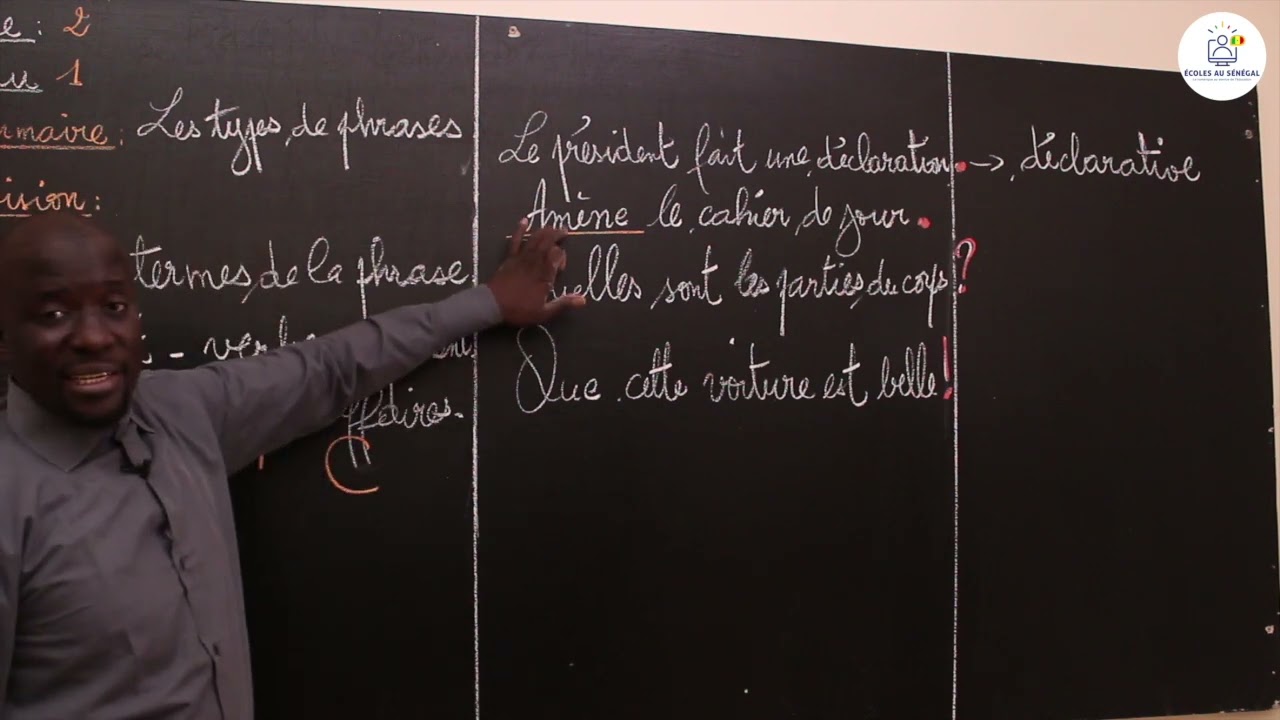 e : 2
u 1
rmaire : Les types de phrases
ision :
termes de la phrase
- verbe
Le président fait une déclaration. → déclarative
Amène le cahier de jour.
elles sont les parties du corps ?
Que cette voiture est belle !
C
ÉCOLES AU SÉNÉGAL